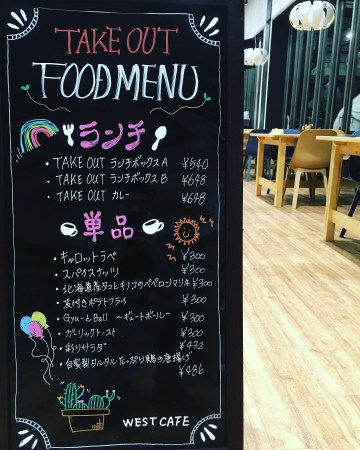 TAKE OUT
FOOD MENU
ランチ
・TAKE OUT ランチボックス A ¥540
・TAKE OUT ランチボックス B ¥648
・TAKE OUT カレー ¥648
単品
・キャロットラペ ¥300
・スパイスナッツ ¥300
・北海道産タコとキノコのペペロンマリネ ¥300
・皮付きポテトフライ ¥300
・Gyu-とBall 〜ギュートボール〜 ¥300
・ガーリックトースト ¥300
・彩りサラダ ¥432
・自家製タルタルたっぷり鶏の唐揚げ
¥486
WEST CAFE